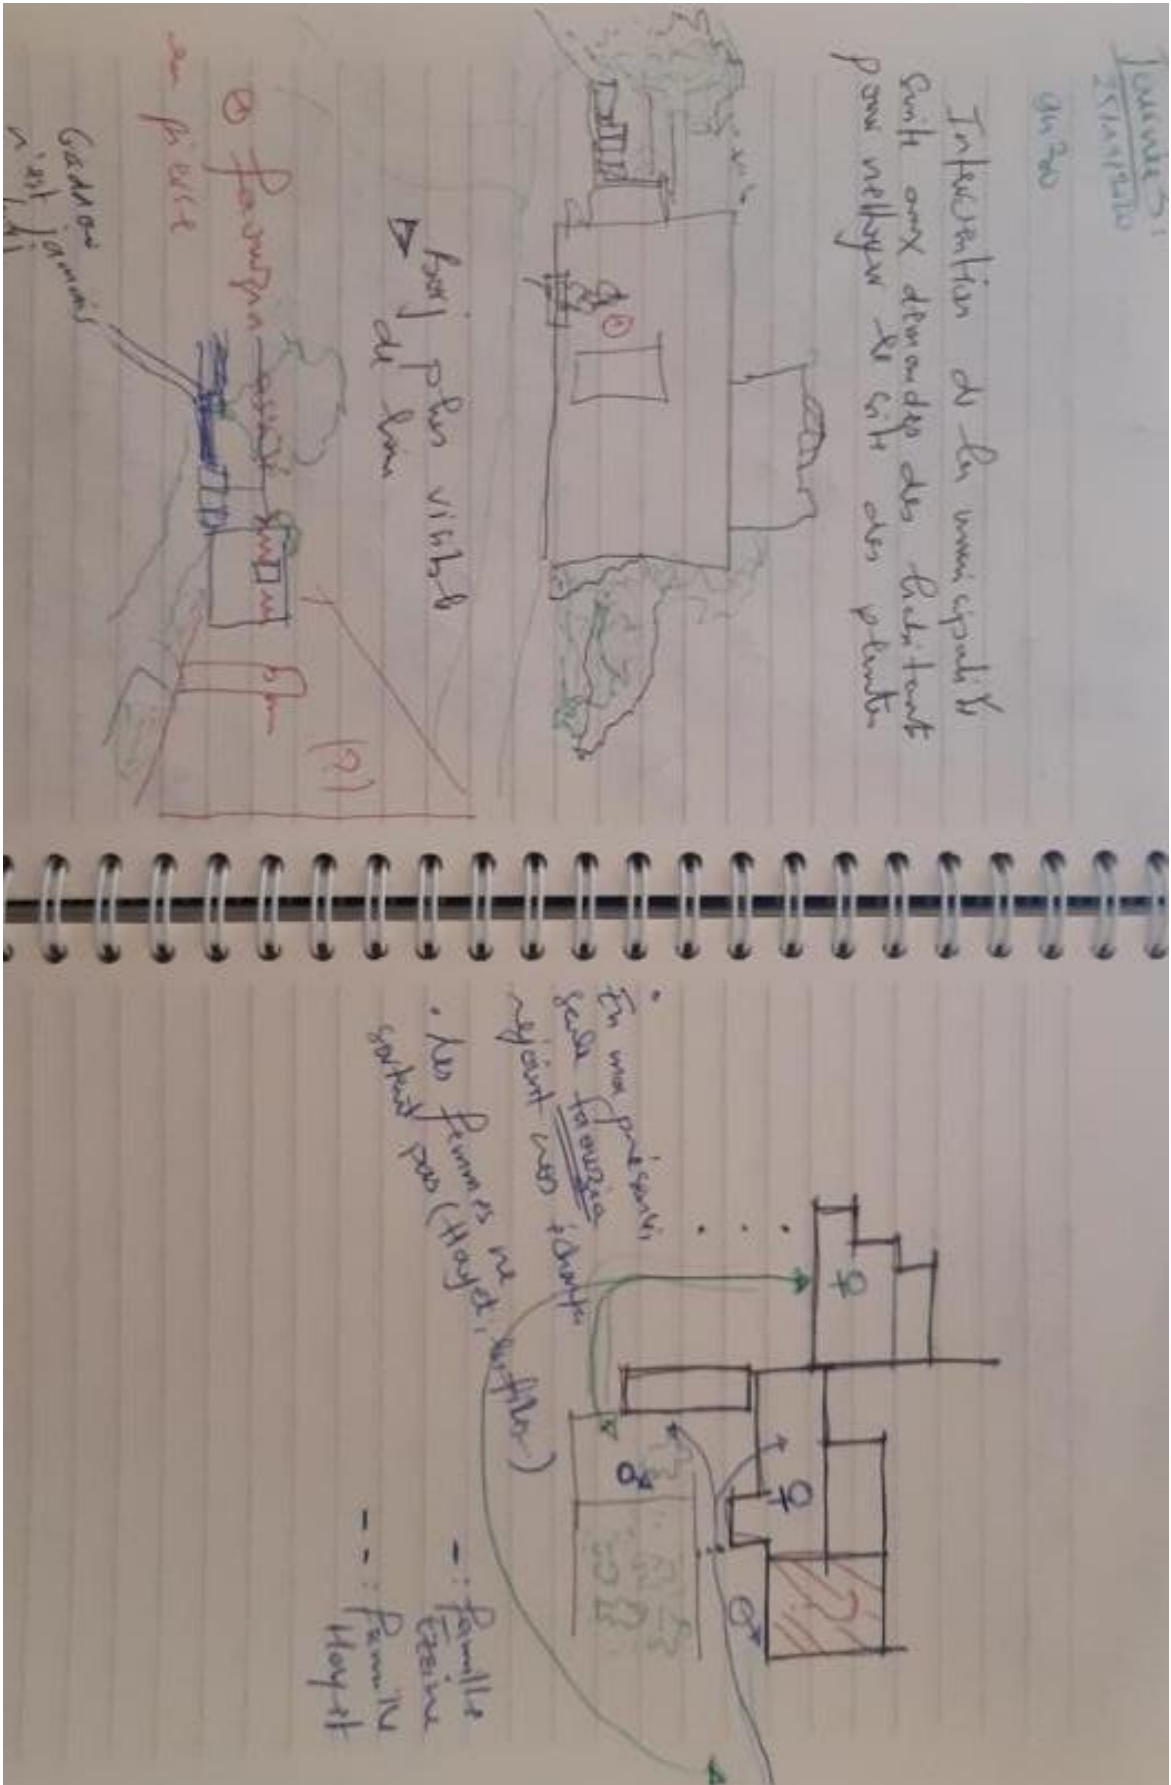 Journée 5:
9h30
Intervention de la municipalité
suite aux demandes des habitant
pour nettoyer le site des plantes
①
borj plus visible
de loin
① fawzia assise sur un
en pierre
banc
(?)
Gaddour
n'est jamais
• En ma présence,
seule faouzia
rejoint nos échanges
• Les femmes ne
sortent pas (Hayet, les filles)
♀
♀
?
— : famille
Ezzine
-- : famille
Hayet